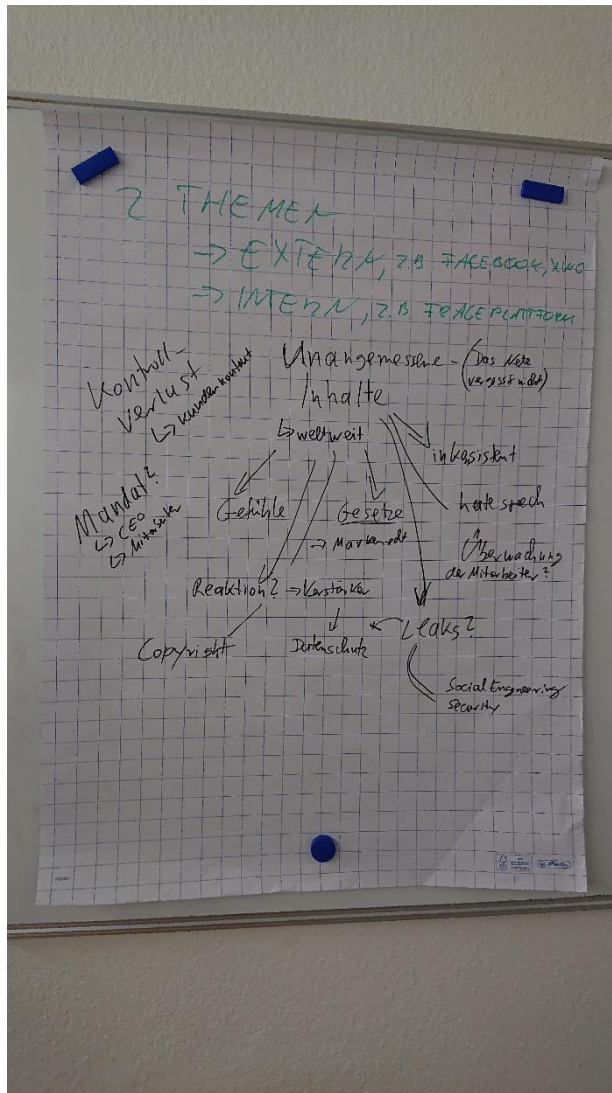 2 THEMEN
→ EXTERN, Z.B FACEBOOK,
→ INTERN, Z.B FRAGEPLATTFORM
Kontroll-
verlust
↳ Kundenkontakt
Unangemessene -
Inhalte
(Das Netz
vergisst nicht)
↳ weltweit
inkosistent
Mandat?
↳ CEO
↳ Mitarbeiter
Gefühle
Gesetze
→ Markenrecht
hate speech
Überwachung
der Mitarbeiter?
Reaktion? → Verstärker
Copyright
Datenschutz
Leaks?
Social Engineering
Security